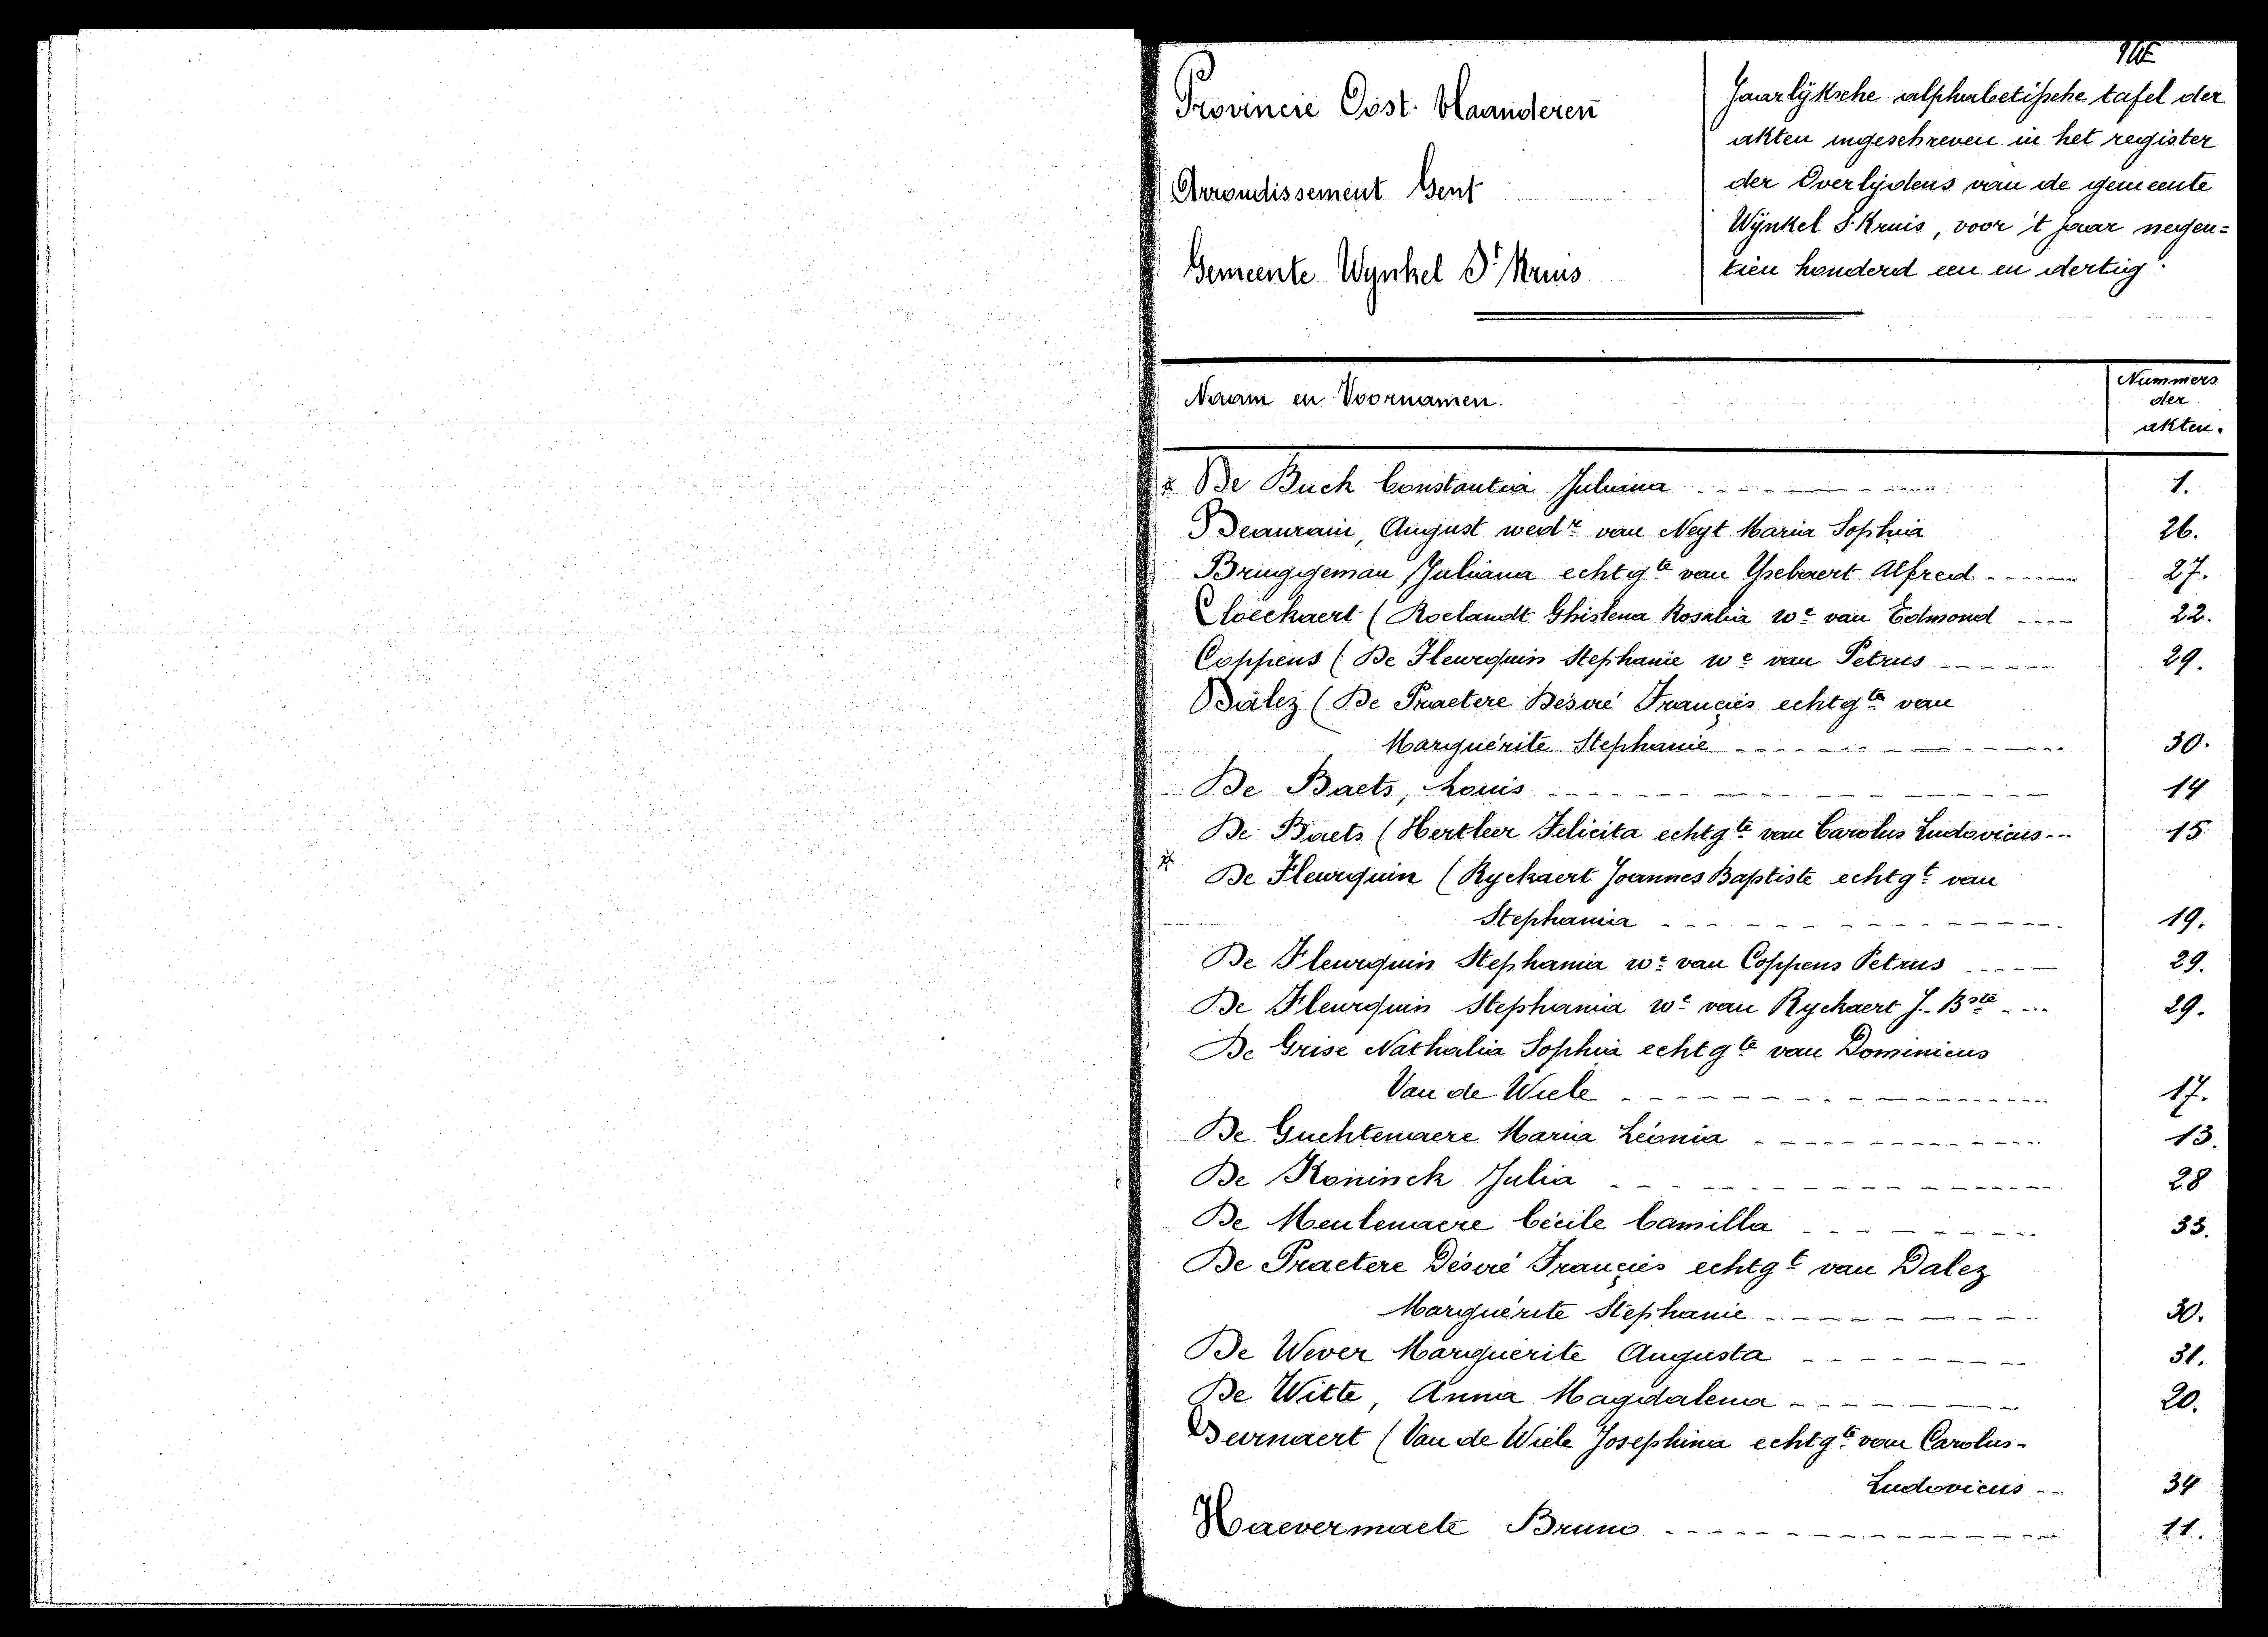 Provincie Oost-Vlaanderen
Arrondissement Gent
Gemeente Wynkel St Kruis
Jaarlijksche alphabetische tafel der
akten ingeschreven in het register
der Overlijdens van de gemeente
Wijnkel S. Kruis, voor 't jaar negen=
tien honderd een en dertig.
Naam en Voornamen.
Nummers
der
akten.
De Buck Constantia Juliana 1.
Beaurain, August wedr van Neyt Maria Sophia 26.
Bruggeman Juliana echtgte van Ysebaert Alfred 27.
Cloeckaert (Roelandt Ghislena Rosalia we van Edmond 22.
Coppens (De Fleurquin Stephanie we van Petrus 29.
Dalez (De Praetere Désiré Françies echtgte van
Marguérite Stephanie 30.
De Baets, Louis 14
De Baets (Hertleer Felicita echtgte van Carolus Ludovicus 15
De Fleurquin (Ryckaert Joannes Baptiste echtgt van
Stephania 19.
De Fleurquin Stephania we van Coppens Petrus 29.
De Fleurquin Stephania we van Ryckaert J. Bste 29.
De Grise Nathalia Sophia echtgte van Dominicus
Van de Wiele 17.
De Guchtenaere Maria Léonia 13.
De Koninck Julia 28
De Meulenaere Cécile Camilla 33.
De Praetere Désiré Françies echtgt van Dalez
Marguérite Stephanie 30.
De Wever Marguerite Augusta 31.
De Witte, Anna Magdalena 20.
Deurnaert (Van de Wiele Josephina echtgte van Carolus-
Ludovicus 34
Haevermaete Bruno 11.